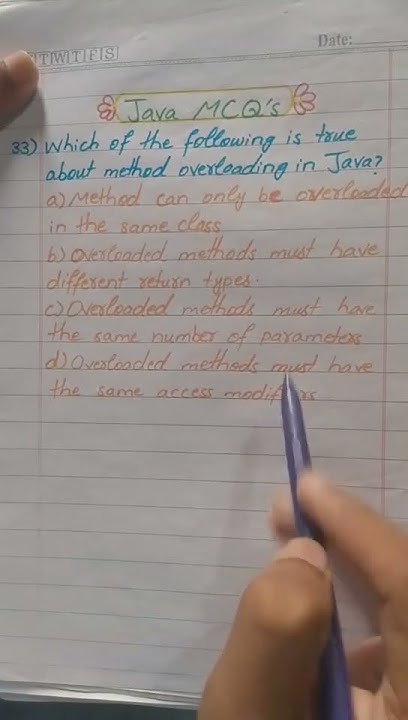 TWTFS
Date:
Java MCQ's
33) Which of the following is true
about method overloading in Java?
a) Method can only be overloaded
in the same class
b) Overloaded methods must have
different return types.
c) Overloaded methods must have
the same number of parameters
d) Overloaded methods must have
the same access modifiers